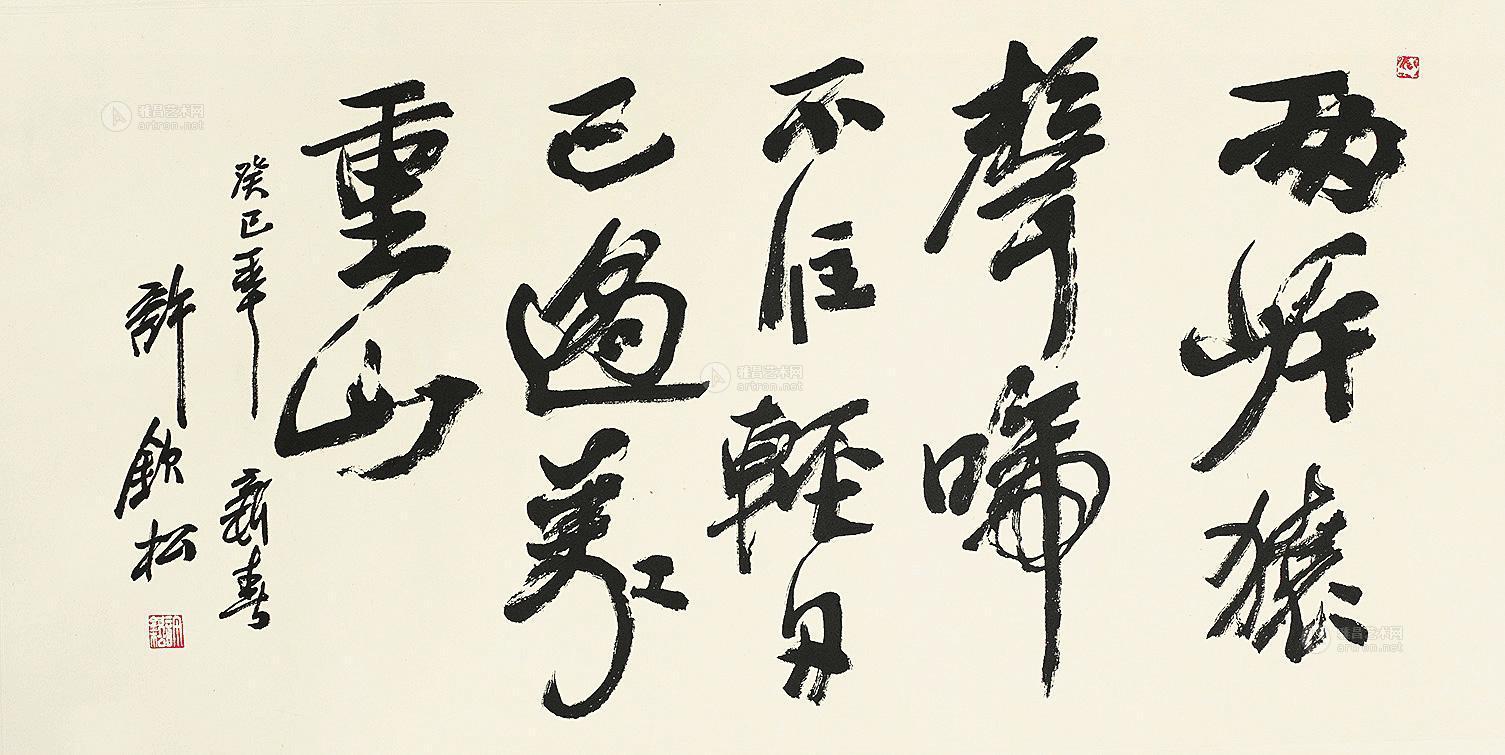 兩岸猿
聲啼
不住輕舟
已過萬
重山
癸巳年新春
許欽松
雅昌艺术网
artron.net
雅昌艺术网
artron.net
雅昌艺术网
artron.net